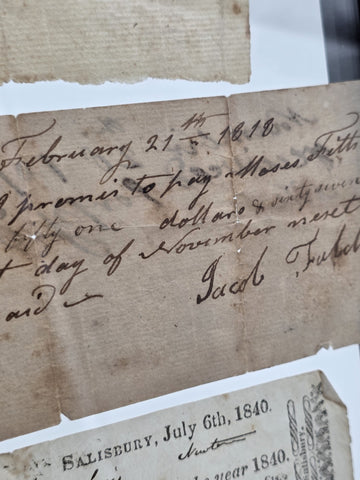 February 21th 1818
I promis to pay Moses
fifty one dollars & sixty seven
day of November next
aid
Jacob
SALISBURY, July 6th, 1840.
Newton
he year 1840.
Salisbury,